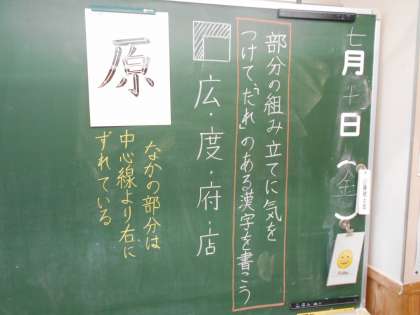 七月十日(金)
部分の組み立てに気を
つけて、「だれ」のある漢字を書こう
広・度・府・店
原
なかの部分は
中心線より右に
ずれている